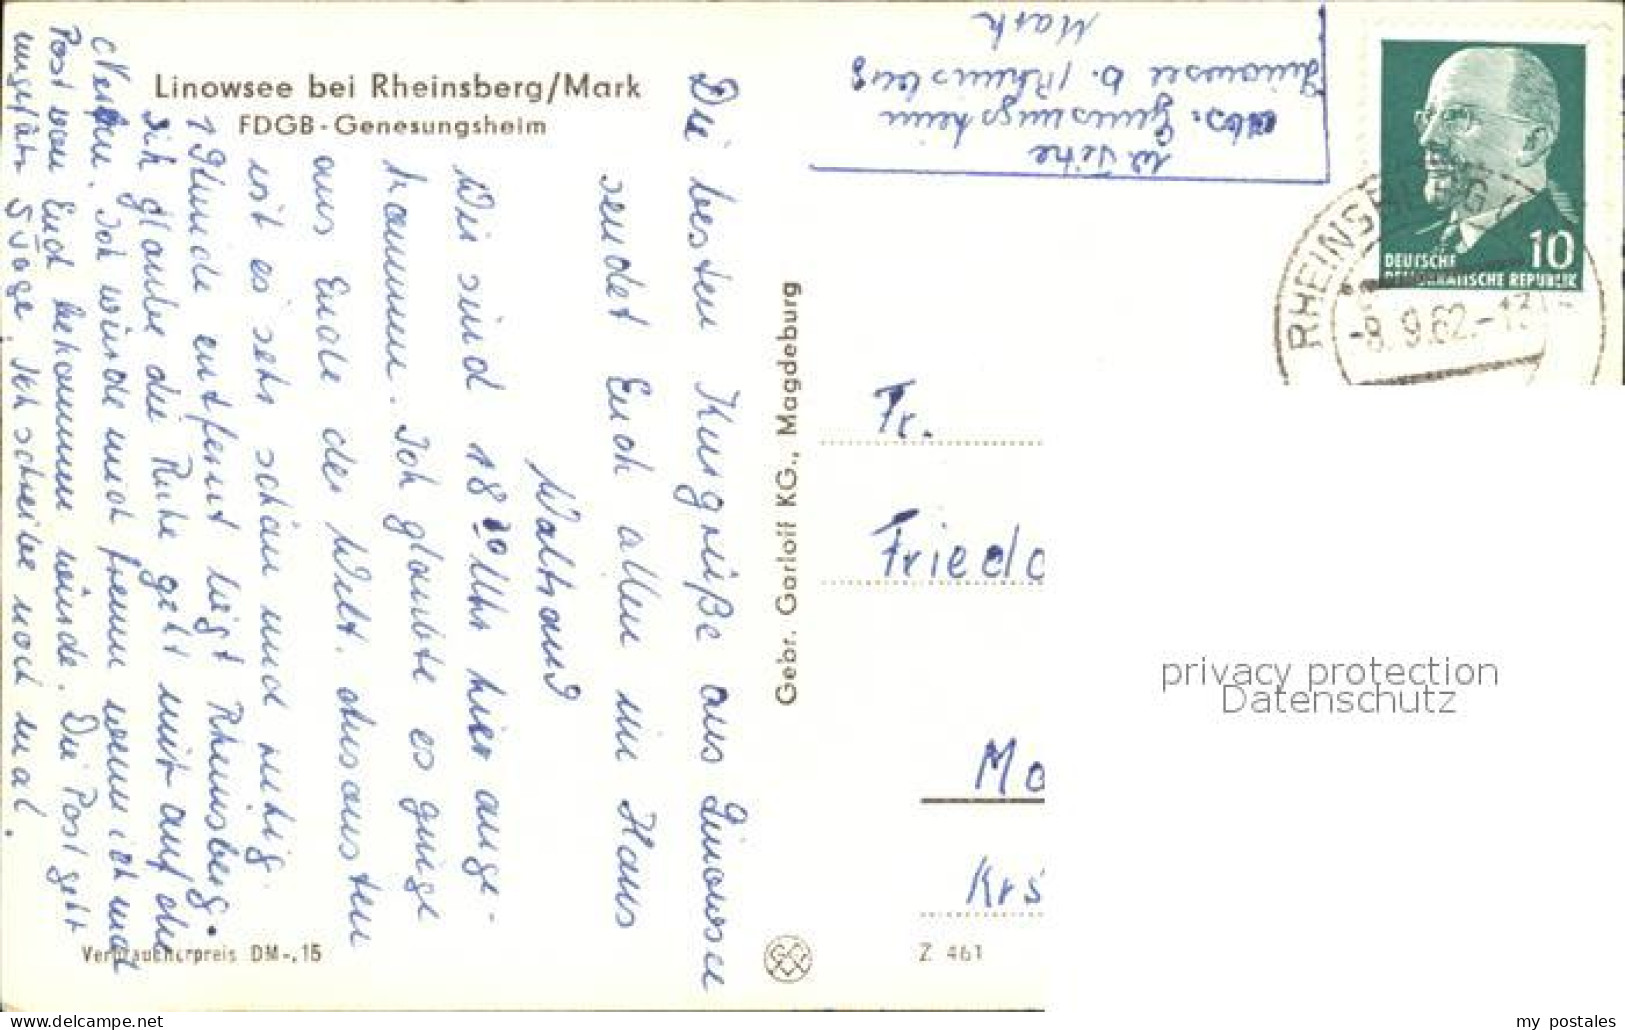 Linowsee bei Rheinsberg/Mark
FDGB-Genesungsheim
Die besten Kurgrüße aus Linowsee
sendet Euch allen im Haus
Waltraud
Wir sind 18 20 Uhr hier ange-
kommen. Ich glaubte es ginge
ans Ende der Welt. Ansonsten
ist es sehr schön und ruhig.
1 Stunde entfernt liegt Rheinsberg.
Ich glaube die Ruhe geht mir auf die
Nerven. Ich würde mich freuen wenn ich mal
Post von Euch bekommen würde. Die Post geht
ungefähr 5 Tage. Ich schreibe noch mal.
Verbraucherpreis DM-,15
Gebr. Garloff KG., Magdeburg
Z 461
Abs. Genesungsheim
Linowsee b. Rheinsberg
Mark
DEUTSCHE
DEMOKRATISCHE REPUBLIK
10
RHEINSBERG
-8.9.62.-13
Fr.
Frieda
Mo
Krs
privacy protection
Datenschutz
my postales
www.delcampe.net